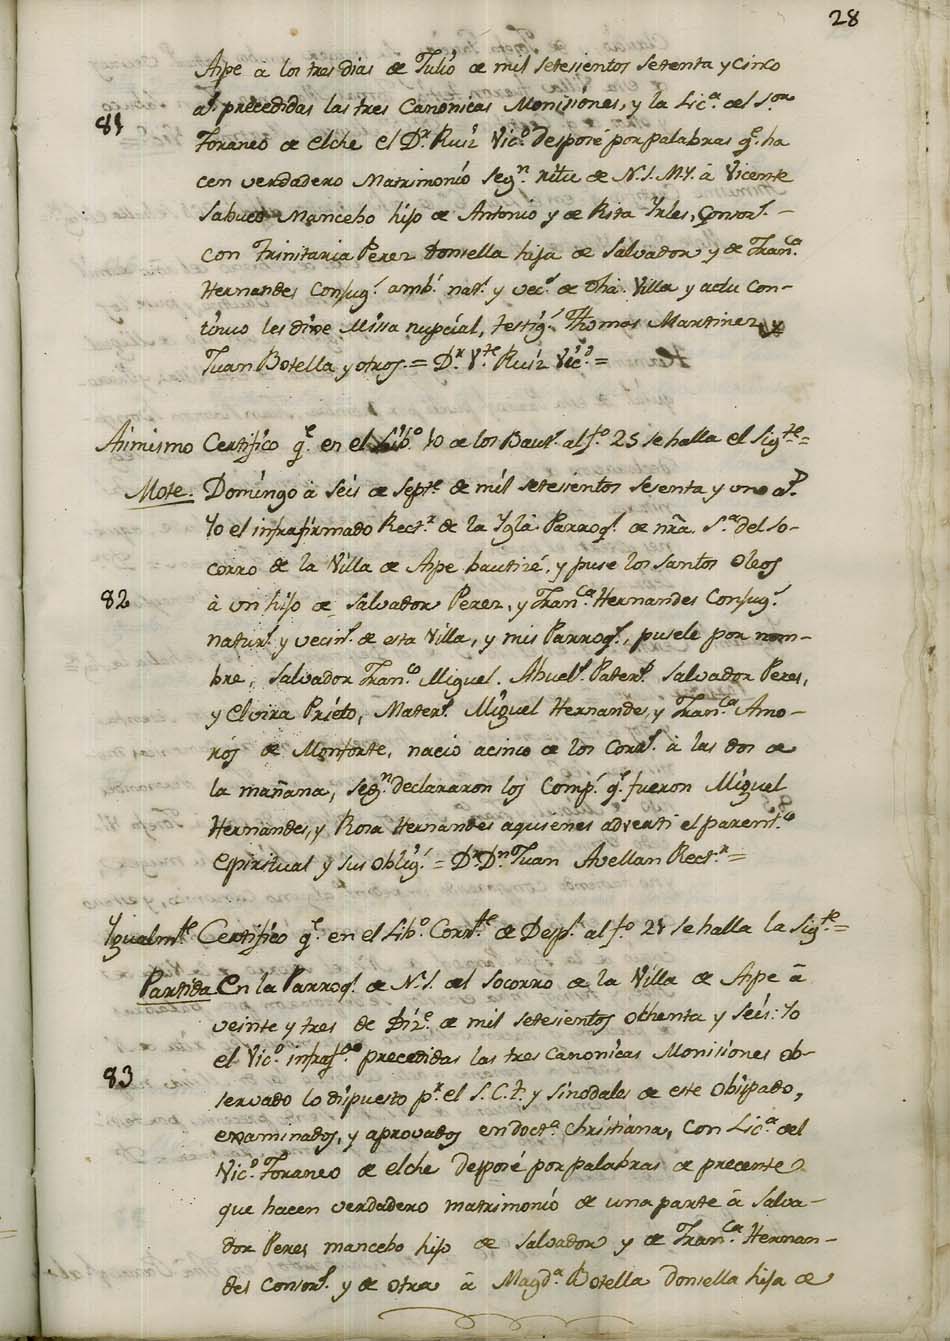 28
Aspe à los tres dias de Julio de mil setesientos setenta y cinco
a.s precedidas las tres Canonicas Monisiónes, y la Lic.a del S.or
81
Foraneo de Elche el D.r Ruiz Vic.o desposé por palabras q.e ha
cen verdadero Matrimonio Seg.n ritu de N.S.M.Y. à Vicente
Sabuco Mancebo hijo de Antonio y de Rita Yrles, Consor.s -
con Trinitaria Perez Donsella hija de Salvador y de Fran.ca
Hernandes Conjug.s amb.s nat.s y vec.s de dha. Villa y actu Con-
tinuo les dixe Missa nupcial, testig.s Thomas Martinez
Juan Botella y otros = D.r V.te Ruiz Vic.o =
Asimismo Certifico q.e en el Lib.o 10 de los Baut.s al f.o 25 se halla el Sig.te =
Mote. Domingo à Seis de Sept.e de mil setesientos sesenta y uno a.s
Yo el infrafirmado Rect.r de la Ygla Parroq.l de nra. S.a del So-
corro de la Villa de Aspe bautizé, y puse los Santos Oleos
82
à un hijo de Salvador Perez, y Fran.ca Hernandes Conjug.s
natur.s y vecin.s de esta Villa, y mis Parroq.s, pusele por nom-
bre, Salvador Fran.co Miguel. Abuel.s Pater.s Salvador Peres,
y Elvira Priéto, Mater.s Miguel Hernandes, y Fran.ca Amo-
rós de Monforte, nacio acinco de los Corr.s à las dos de
la mañana, seg.n declararon los Comp.s q.e fueron Miguel
Hernandes, y Rosa Hernandes aquienes adverti el parent.co
Espiritual y sus oblig.s = D.r D.n Juan Avellan Rect.r =
Ygualm.te Certifico q.e en el Lib.o Corr.te de Desp.s al f.o 28 se halla la Sig.te =
Partida En la Parroq.l de N.S. del Socorro de la Villa de Aspe à
veinte y tres de Diz.e de mil setesientos othenta y Seis: Yo
el Vic.o infraf.do precedidas las tres canonicas Monisiones ob-
83
servado lo dispuesto p.r el S.C.T. y Sinodales de este Obispado,
examinados, y aprovados en doct.a christiana, con Lic.a del
Vic.o Foraneo de Elche desposé por palabras de precente
que hacen verdadero matrimonio de una parte à Salva-
dor Peres mancebo hijo de Salvador y de Fran.ca Hernan-
des Consor.s y de otra à Magd.a Botella donsella hija de